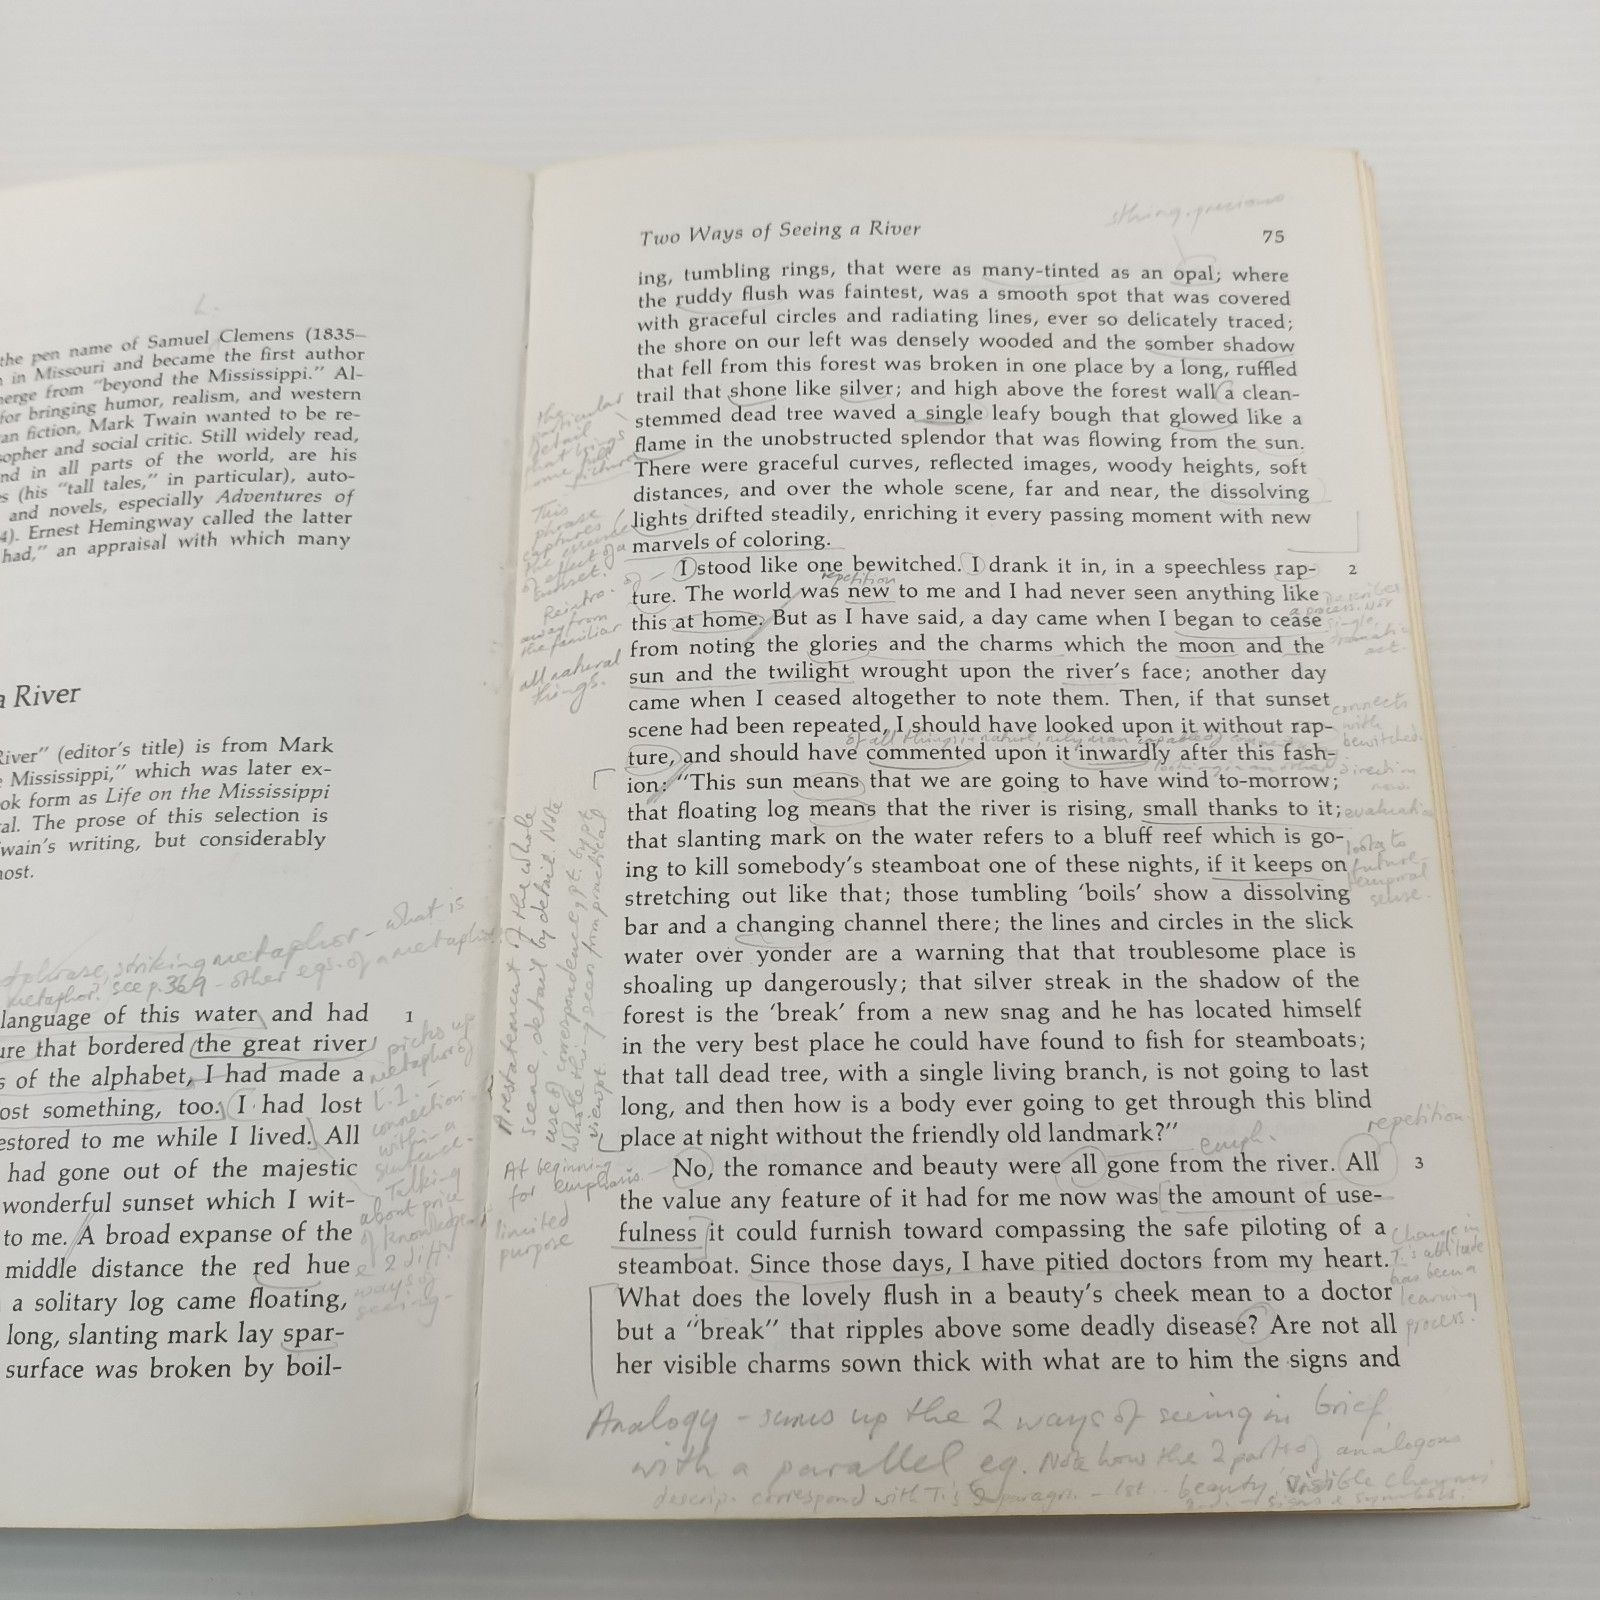 L.
the pen name of Samuel Clemens (1835–
in Missouri and became the first author
erge from "beyond the Mississippi." Al-
for bringing humor, realism, and western
an fiction, Mark Twain wanted to be re-
opher and social critic. Still widely read,
nd in all parts of the world, are his
s (his "tall tales," in particular), auto-
and novels, especially Adventures of
4). Ernest Hemingway called the latter
had," an appraisal with which many
a River
River" (editor's title) is from Mark
Mississippi," which was later ex-
ok form as Life on the Mississippi
al. The prose of this selection is
wain's writing, but considerably
ost.
phrase, striking metaphor – what is
metaphor? see p.369 – other egs. of a metaphor
language of this water and had 1
ure that bordered the great river
s of the alphabet, I had made a
ost something, too. I had lost
estored to me while I lived. All
had gone out of the majestic
wonderful sunset which I wit-
to me. A broad expanse of the
middle distance the red hue
a solitary log came floating,
long, slanting mark lay spar-
surface was broken by boil-
picks up
metaphor of
L.1. –
connection
within a
sentence.
Talking
about price
of knowledge
2 diff.
ways of
seeing.
sthing. precious
Two Ways of Seeing a River 75
ing, tumbling rings, that were as many-tinted as an opal; where
the ruddy flush was faintest, was a smooth spot that was covered
with graceful circles and radiating lines, ever so delicately traced;
the shore on our left was densely wooded and the somber shadow
that fell from this forest was broken in one place by a long, ruffled
trail that shone like silver; and high above the forest wall a clean-
stemmed dead tree waved a single leafy bough that glowed like a
flame in the unobstructed splendor that was flowing from the sun.
There were graceful curves, reflected images, woody heights, soft
distances, and over the whole scene, far and near, the dissolving
lights drifted steadily, enriching it every passing moment with new
marvels of coloring.
I stood like one bewitched. I drank it in, in a speechless rap- 2
repetition
ture. The world was new to me and I had never seen anything like
this at home. But as I have said, a day came when I began to cease
from noting the glories and the charms which the moon and the
sun and the twilight wrought upon the river's face; another day
came when I ceased altogether to note them. Then, if that sunset
scene had been repeated, I should have looked upon it without rap-
ture, and should have commented upon it inwardly after this fash-
ion: "This sun means that we are going to have wind to-morrow;
that floating log means that the river is rising, small thanks to it;
that slanting mark on the water refers to a bluff reef which is go-
ing to kill somebody's steamboat one of these nights, if it keeps on
stretching out like that; those tumbling 'boils' show a dissolving
bar and a changing channel there; the lines and circles in the slick
water over yonder are a warning that that troublesome place is
shoaling up dangerously; that silver streak in the shadow of the
forest is the 'break' from a new snag and he has located himself
in the very best place he could have found to fish for steamboats;
that tall dead tree, with a single living branch, is not going to last
long, and then how is a body ever going to get through this blind
place at night without the friendly old landmark?"
repetition.
emph.
No, the romance and beauty were all gone from the river. All 3
the value any feature of it had for me now was the amount of use-
fulness it could furnish toward compassing the safe piloting of a
steamboat. Since those days, I have pitied doctors from my heart.
What does the lovely flush in a beauty's cheek mean to a doctor
but a "break" that ripples above some deadly disease? Are not all
her visible charms sown thick with what are to him the signs and
the
particular
detail
that brings
picture
This
phrase
captures
the essence
of effect of a
sunset.
away from
the familiar
all natural
things.
A restatement of the whole
scene, detail by detail. Note
use of correspondence, pt. by pt.
whole thing seen from practical
viewpt
At beginning
for emphasis.
limited
purpose
describes
a process. Not
single,
dramatic
act.
connects
with
bewitched.
direction
now.
evaluation
looks to
future –
temporal
sense.
Change in
T.'s attitude
has been a
learning
process.
Analogy – sums up the 2 ways of seeing in brief,
with a parallel eg. Note how the 2 parts of analogous
descrip. correspond with T.'s 2 paragrs. – 1st – beauty, visible charms
2nd – signs & symbols.